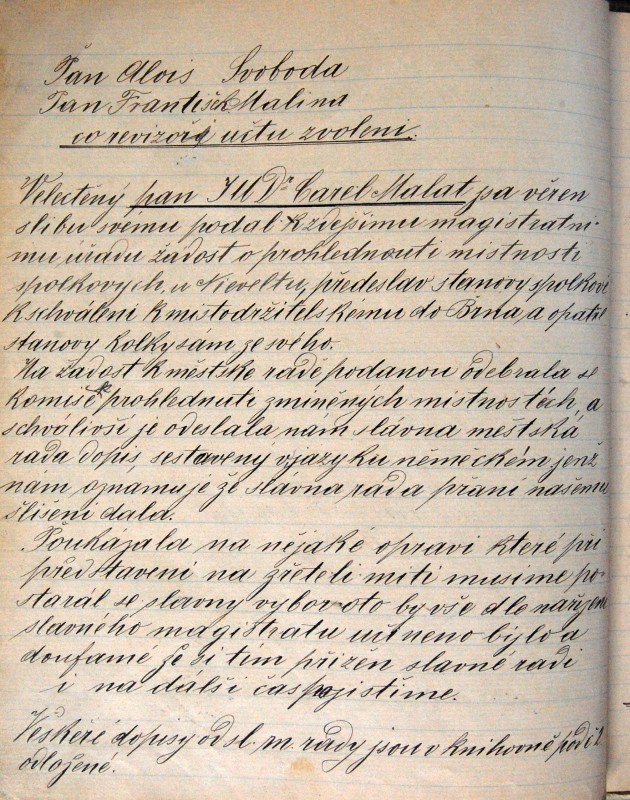 Pan Alois Svoboda
Pan František Malina
co revizoři učtu zvoleni.
Velectěný pan JUDr Carel Malat jsa věren
slibu svému podal k zdejšímu magistratní-
mu úřadu žádost o prohlednouti mistnosti
spolkovych u Nieveltu, předeslav stanovy spolkové
k schváleni k mistodržitelskému do Brna, a opatřil
stanovy kolky sám ze svého.
Na žádost k městské radě podanou odebrala se
komise k prohlednuti zminěných mistnostech, a
schválivsí je odeslala nám slávna mestská
rada dopis, sestavený v jazyku německém jenž
nám oznamuje že slavna ráda přaní našemu
slišeni dala.
Poukázala na nějaké opravi které při
představeni na zřeteli miti musime po-
starál se slavny vybor oto by vše dle nařizeni
slavného magistratu učineno býlo a
doufamé že si tím přizěn slavné radi
i na dálši čas pojistíme.
Veškéré dopisy od sl. m. rády jsou v knihovně pod č
odložené.